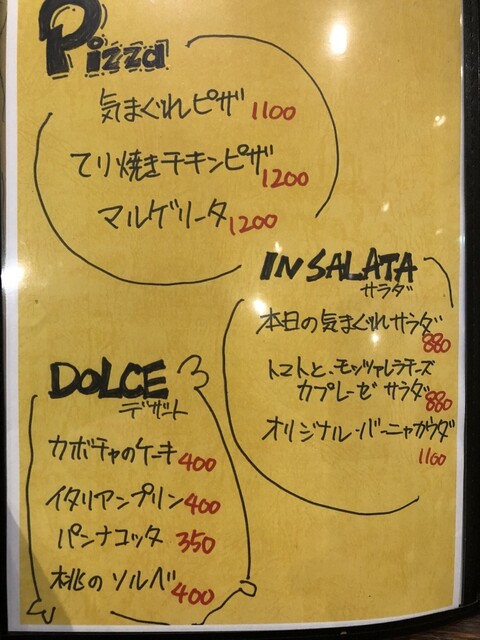 Pizza
気まぐれピザ 1100
てり焼きチキンピザ 1200
マルゲリータ 1200
INSALATA
サラダ
本日の気まぐれサラダ 880
トマトと、モッツァレラチーズ
カプレーゼ サラダ 880
オリジナル・バーニャカウダ
1100
DOLCE
デザート
カボチャのケーキ 400
イタリアンプリン 400
パンナコッタ 350
桃のソルベ 400